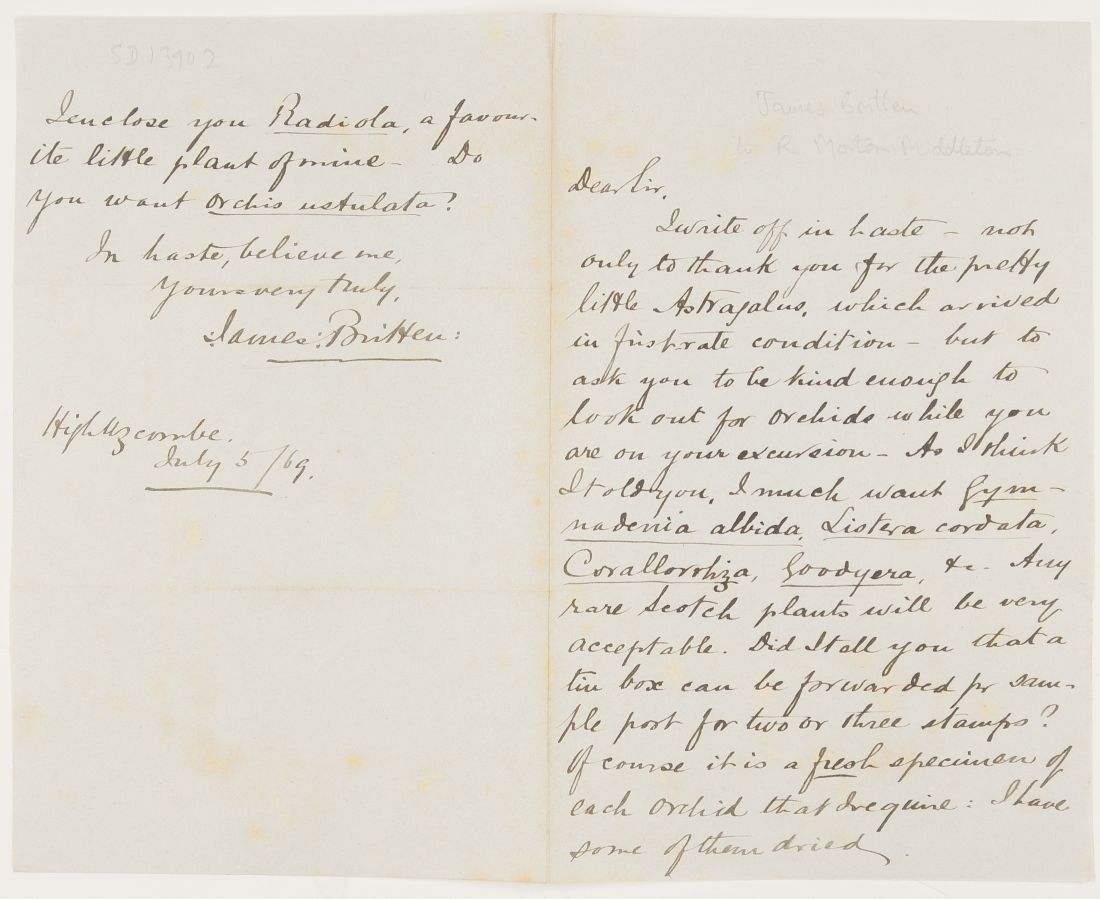 James Britten
to R Morton Middleton
Dear Sir,
I write off in haste – not
only to thank you for the pretty
little Astragalus, which arrived
in first-rate condition – but to
ask you to be kind enough to
look out for orchids while you
are on your excursion – As I think
I told you, I much want Gym-
nadenia albida, Listera cordata,
Corallorohiza, Goodyera, &c – Any
rare Scotch plants will be very
acceptable. Did I tell you that a
tin box can be forwarded pr sam-
ple post for two or three stamps?
Of course it is a fresh specimen of
each orchid that I require: I have
some of them dried.
SD13902
I enclose you Radiola, a favour-
ite little plant of mine – Do
you want Orchis ustulata?
In haste, believe me,
Yours very truly,
:James: Britten:
High Wycombe.
July 5/69.